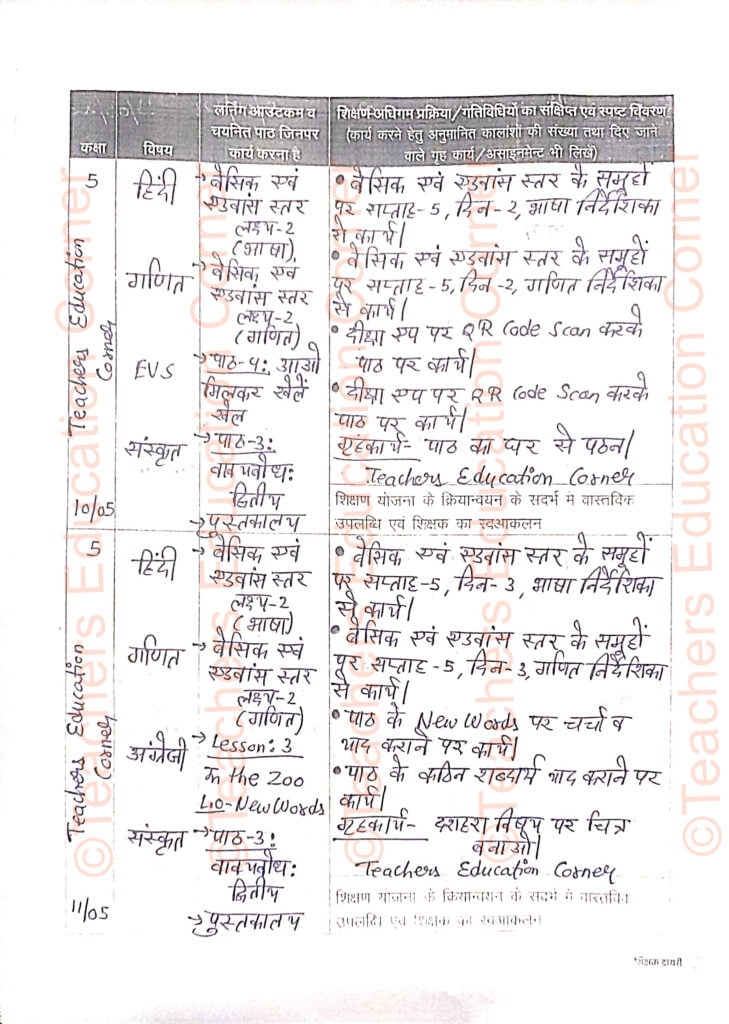 लर्निंग आउटकम व
चयनित पाठ जिनपर
कार्य करना है
शिक्षण-अधिगम प्रक्रिया/गतिविधियों का संक्षिप्त एवं स्पष्ट विवरण
(कार्य करने हेतु अनुमानित कालांशों की संख्या तथा दिए जाने
वाले गृह कार्य/असाइनमेन्ट भी लिखें)
कक्षा
विषय
5
हिंदी
→ बेसिक एवं
एडवांस स्तर
लक्ष्य-2
(भाषा)
• बेसिक एवं एडवांस स्तर के समूहों
पर सप्ताह-5, दिन-2, भाषा निर्देशिका
से कार्य।
गणित
→ बेसिक एवं
एडवांस स्तर
लक्ष्य-2
(गणित)
• बेसिक एवं एडवांस स्तर के समूहों
पर सप्ताह-5, दिन-2, गणित निर्देशिका
से कार्य।
EVS
→ पाठ-4: आओ
मिलकर खेलें
खेल
• दीक्षा एप पर QR Code Scan करके
पाठ पर कार्य।
संस्कृत
→ पाठ-3:
वाक्यबोध:
द्वितीय
→ पुस्तकालय
• दीक्षा एप पर QR Code Scan करके
पाठ पर कार्य।
गृहकार्य- पाठ का घर से पठन।
Teachers Education Corner
शिक्षण योजना के क्रियान्वयन के सदर्भ मे वास्तविक
उपलब्धि एवं शिक्षक का स्वआकलन
Teachers Education
Corner
10/05
5
हिंदी
→ बेसिक एवं
एडवांस स्तर
लक्ष्य-2
(भाषा)
• बेसिक एवं एडवांस स्तर के समूहों
पर सप्ताह-5, दिन-3, भाषा निर्देशिका
से कार्य।
गणित
→ बेसिक एवं
एडवांस स्तर
लक्ष्य-2
(गणित)
• बेसिक एवं एडवांस स्तर के समूहों
पर सप्ताह-5, दिन-3, गणित निर्देशिका
से कार्य।
अंग्रेजी
→ Lesson: 3
In the Zoo
L.O-New Words
• पाठ के New Words पर चर्चा व
याद कराने पर कार्य।
संस्कृत
→ पाठ-3:
वाक्यबोध:
द्वितीय
→ पुस्तकालय
• पाठ के कठिन शब्दार्थ याद कराने पर
कार्य।
गृहकार्य- दशहरा विषय पर चित्र
बनाओ।
Teachers Education Corner
शिक्षण योजना के क्रियान्वयन के सदर्भ मे वास्तविक
उपलब्धि एवं शिक्षक का स्वआकलन
Teachers Education
Corner
11/05
शिक्षक डायरी
©Teachers Education Corner
©Teachers Education Corner
©Teachers Education Corner
©Teachers Education Corner
©Teachers Education Corner